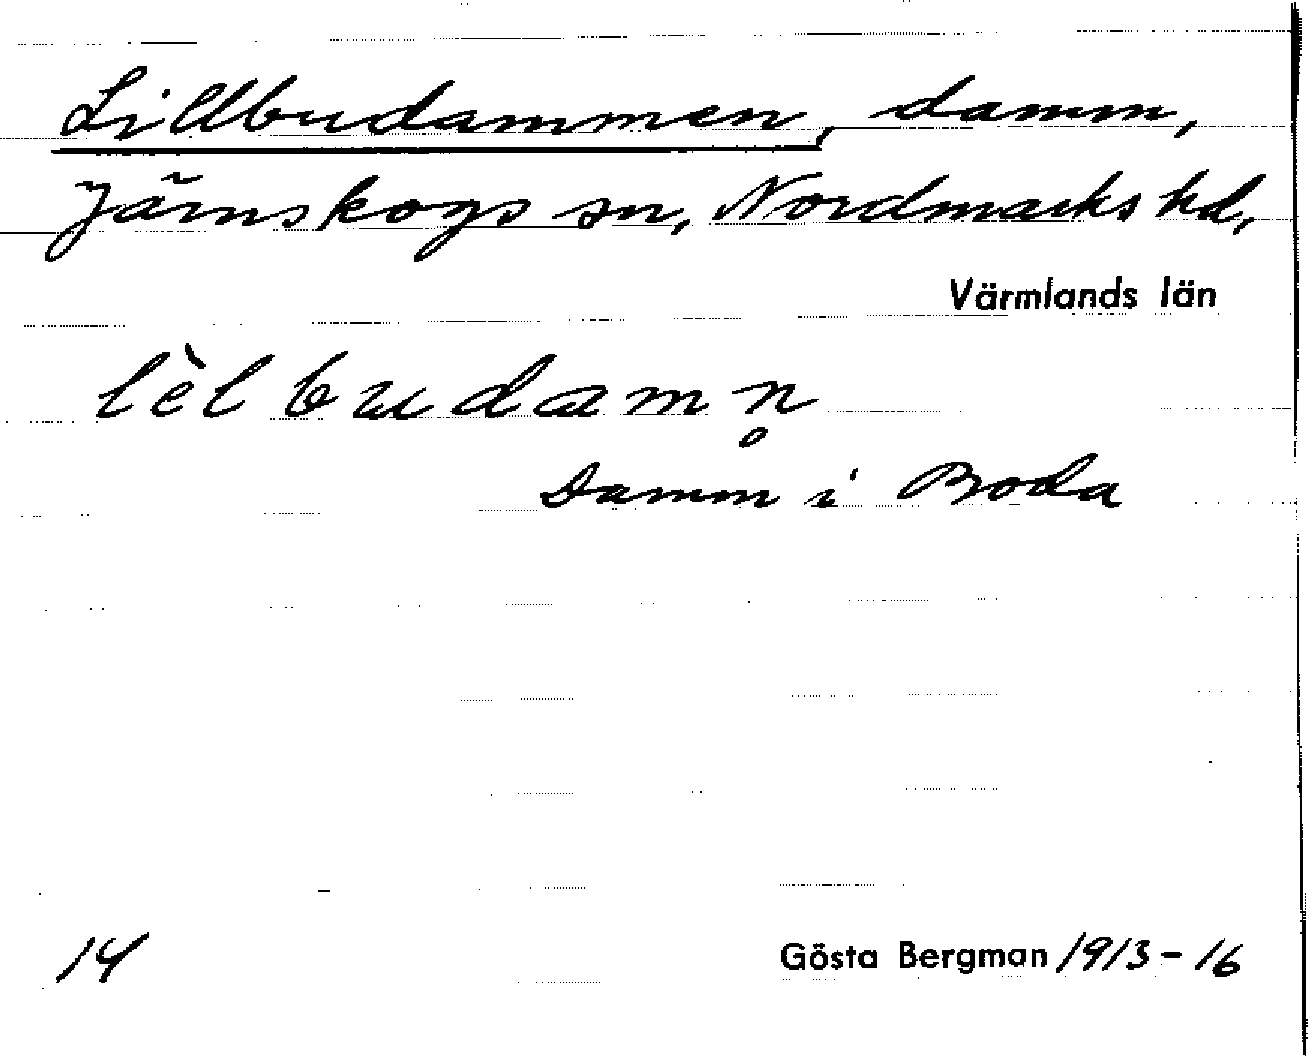 Lillbudammen, damm,
Järnskogs sn, Nordmarks hd,
Värmlands län
lèlbudamn̥
Damm i Boda
14
Gösta Bergman 1913-16